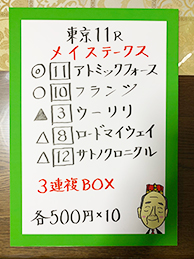 東京11R
メイステークス
◎11アトミックフォース
○10フランツ
▲3ウーリリ
△8ロードマイウェイ
△12サトノクロニクル
3連複BOX
各500円×10